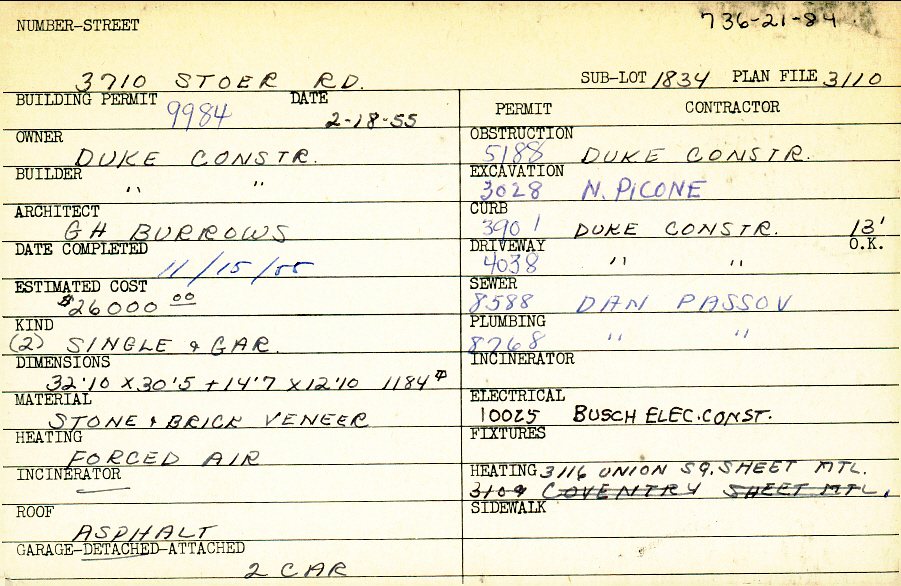 736-21-84
NUMBER-STREET
3710 STOER RD.
SUB-LOT 1834 PLAN FILE 3110
BUILDING PERMIT 9984 DATE 2-18-55
OWNER
DUKE CONSTR.
BUILDER
" "
ARCHITECT
GH BURROWS
DATE COMPLETED
11/15/55
ESTIMATED COST
$26000 00
KIND
(2) SINGLE & GAR.
DIMENSIONS
32'10 X 30'5 + 14'7 X 12'10 1184#
MATERIAL
STONE & BRICK VENEER
HEATING
FORCED AIR
INCINERATOR
—
ROOF
ASPHALT
GARAGE-DETACHED-ATTACHED
2 CAR
PERMIT CONTRACTOR
OBSTRUCTION
5188 DUKE CONSTR.
EXCAVATION
3028 N. PICONE
CURB
3901 DUKE CONSTR. 13'
DRIVEWAY O.K.
4038 " "
SEWER
8588 DAN PASSOV
PLUMBING
8768 " "
INCINERATOR
ELECTRICAL
10025 BUSCH ELEC. CONST.
FIXTURES
HEATING 3116 UNION SQ. SHEET MTL.
3109 COVENTRY SHEET MTL.
SIDEWALK